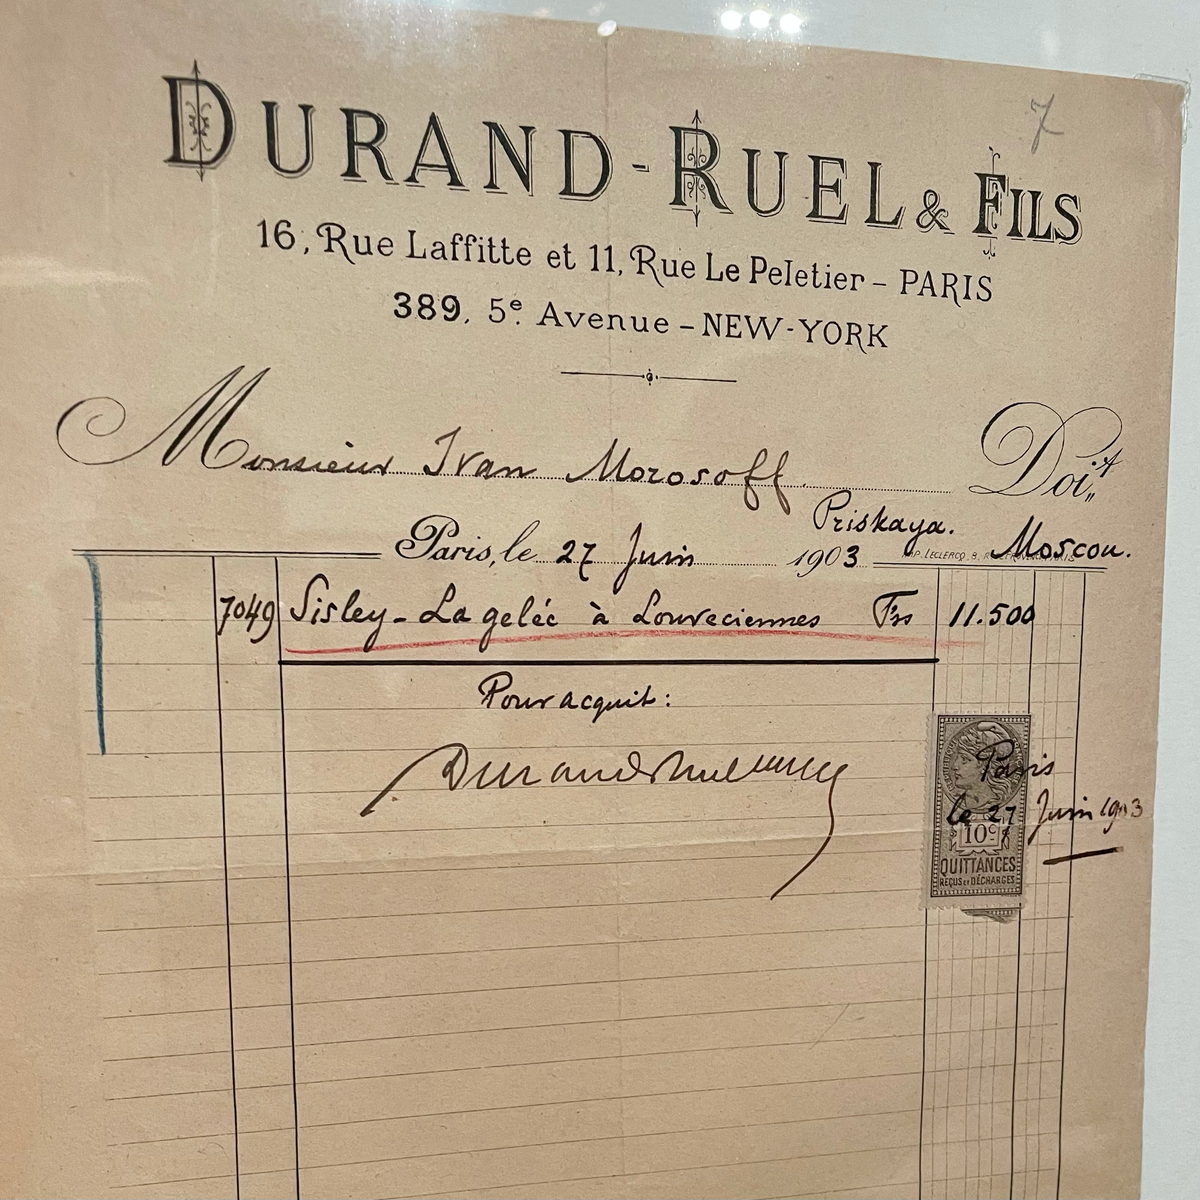 7
DURAND-RUEL & FILS
16, Rue Laffitte et 11, Rue Le Peletier – PARIS
389, 5e Avenue – NEW-YORK
Monsieur Ivan Morosoff Doit
Priskaya. Moscou.
Paris, le 27 Juin 1903
IMP. LECLERCQ, 8, PARIS
7049 Sisley – La gelée à Louveciennes Frs 11.500
Pour acquit:
Durand Ruel
Paris
le 27 Juin 1903
10c
QUITTANCES
REÇUS ET DÉCHARGES